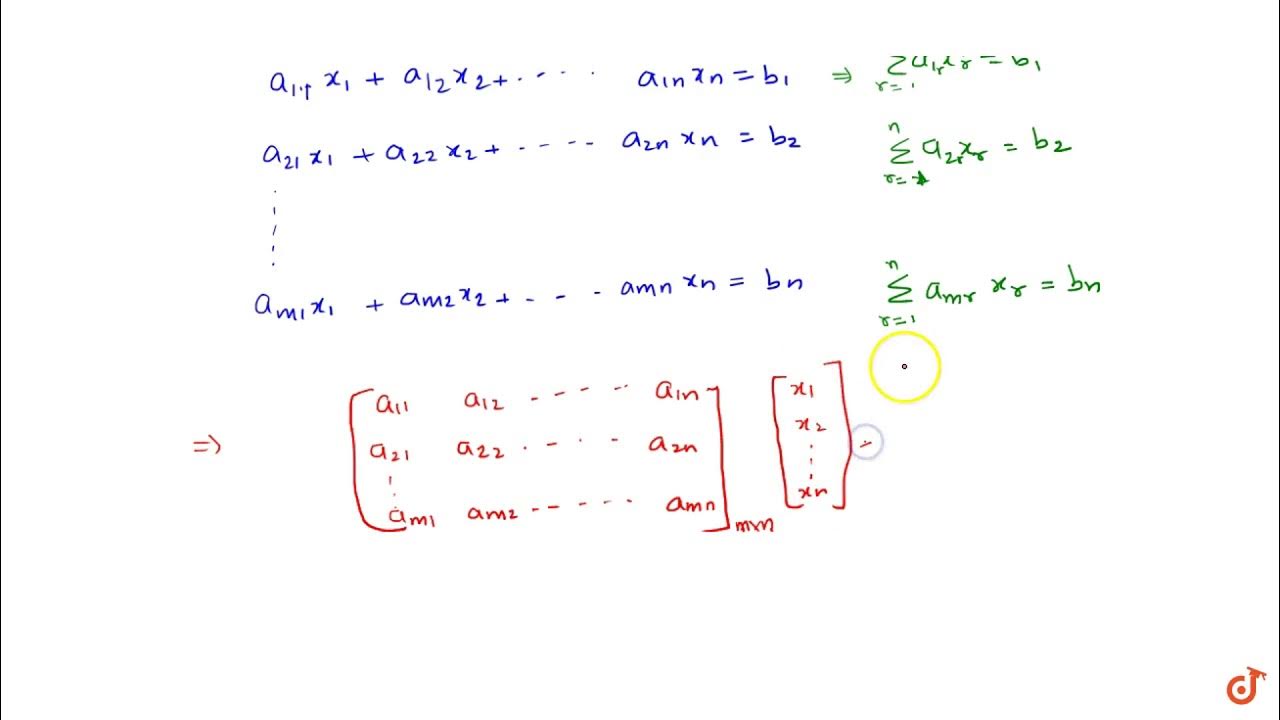 a₁₁ x₁ + a₁₂ x₂ + ---- a₁ₙ xₙ = b₁ ⇒ ∑ᵣ₌₁ a₁ᵣ xᵣ = b₁
a₂₁ x₁ + a₂₂ x₂ + ---- a₂ₙ xₙ = b₂ ∑ⁿᵣ₌₁ a₂ᵣ xᵣ = b₂
aₘ₁ x₁ + aₘ₂ x₂ + --- aₘₙ xₙ = bₙ ∑ⁿᵣ₌₁ aₘᵣ xᵣ = bₙ
⇒ [ a₁₁ a₁₂ ----- a₁ₙ [ x₁ ]
a₂₁ a₂₂ ---- a₂ₙ x₂
⋮ ⋮
aₘ₁ aₘ₂ ------ aₘₙ ]ₘₓₙ xₙ ]